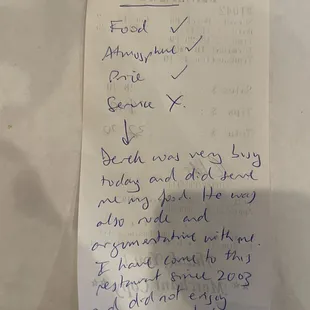 Food ✓
Atmosphere ✓
Price ✓
Service X.
↓
Derek was very busy
today and did serve
me my food. He was
also rude and
argumentative with me.
I have come to this
restaurant since 2003
and did not enjoy